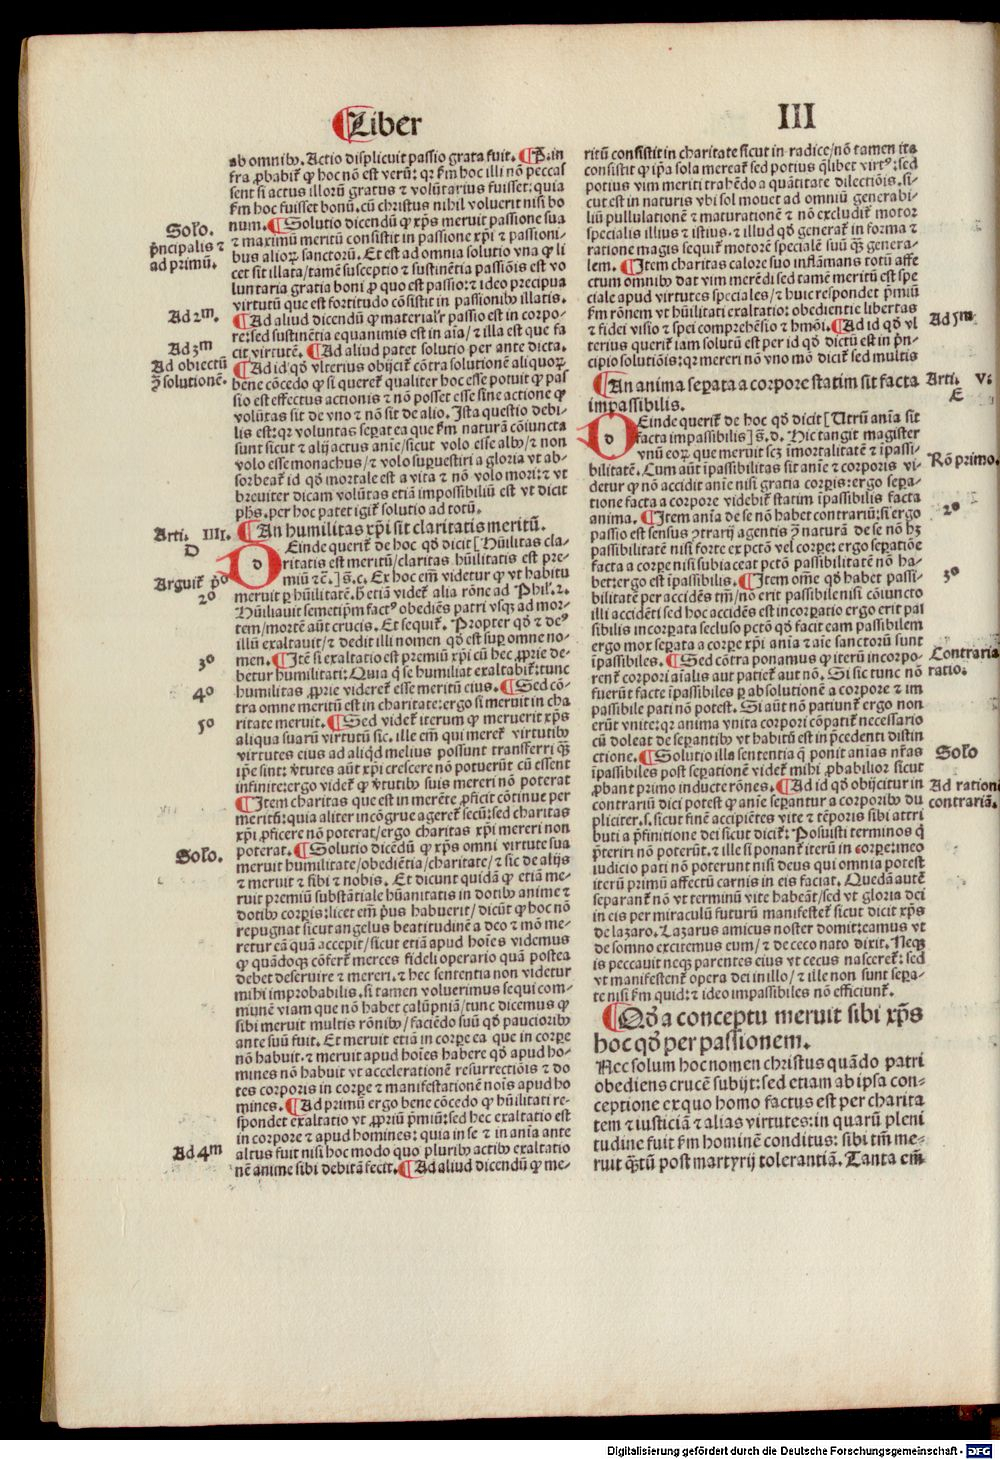 Liber
III
ab omnibꝰ. Actio displicuit passio grata fuit. ¶ P. in
fra ꝓbabit̃ ꝙ hoc nõ est verũ: qr ẜm hoc illi nõ peccas
sent si actus illorũ gratus ⁊ volũtarius fuisset: quia
ẜm hoc fuisset bonũ. cũ christus nihil voluerit nisi bo
num. ¶ Solutio dicendũ ꝙ xp̃s meruit passione sua
⁊ maximũ meritũ consistit in passione xp̃i ⁊ passioni⸗
bus alioꝝ sanctorũ. Et est ad omnia solutio vna ꝙ li
cet sit illata/tamẽ susceptio ⁊ sustinẽtia passiõis est vo
luntaria gratia boni ꝓ quo est passio: ⁊ ideo precipua
virtutũ que est fortitudo cõsistit in passionibꝰ illatis.
¶ Ad aliud dicendũ ꝙ material'r passio est in corpo⸗
re: sed sustinẽtia equanimis est in aĩa/⁊ illa est que fa
cit virtutẽ. ¶ Ad aliud patet solutio per ante dicta.
¶ Ad id qđ vlterius obijcit̃ cõtra solutionẽ aliquoꝝ
bene cõcedo ꝙ si queret̃ qualiter hoc esse potuit ꝙ pas
sio est effectus actionis ⁊ nõ posset esse sine actione ꝙ
volũtas sit de vno ⁊ nõ sit de alio. Ista questio debi⸗
lis est: qr voluntas seꝑata ea que ẜm naturã cõiuncta
sunt sicut ⁊ alij actus anĩe/sicut volo esse albꝰ/⁊ non
volo esse monachus/⁊ volo suꝑuestiri a gloria vt ab⸗
sorbeat̃ id qđ mortale est a vita ⁊ nõ volo mori: ⁊ vt
breuiter dicam volũtas etiã impossibiliũ est vt dicit
pħs. per hoc patet igit̃ solutio ad totũ.
¶ An humilitas xp̃i sit claritatis meritũ.
Deinde querit̃ de hoc qđ dicit [Hũilitas cla⸗
ritatis est meritũ/claritas hũilitatis est pre⸗
miũ ⁊c̃.] s̃.c. Ex hoc em̃ videtur ꝙ vt habitu
meruit ꝑ hũilitatẽ. h̃ etiã videt̃ alia rõne ad Phil'.2.
Hũiliauit semetip̃m factꝰ obediẽs patri vsqꝫ ad mor⸗
tem/mortẽ aũt crucis. Et sequit̃. Propter qđ ⁊ deꝰ
illũ exaltauit/⁊ dedit illi nomen qđ est suꝑ omne no⸗
men. ¶ Itẽ si exaltatio est premiũ xp̃i cũ hec ꝓprie de⸗
betur humilitati: Quia q̃ se humiliat exaltabit̃: tunc
humilitas ꝓprie videret̃ esse meritũ eius. ¶ Sed cõ⸗
tra omne meritũ est in charitate: ergo si meruit in cha
ritate meruit. ¶ Sed videt̃ iterum ꝙ meruerit xp̃s
aliqua suarũ virtutũ sic. ille em̃ qui meret̃ virtutibꝰ
virtutes eius ad aliqđ melius possunt transferri q̃ꝫ
ip̃e sint: v̾tutes aũt xp̃i crescere nõ potuerũt cũ essent
infinite: ergo videt̃ ꝙ v̾tutibꝰ suis mereri nõ poterat
¶ Item charitas que est in merẽte ꝓficit cõtinue per
meritũ: quia aliter incõgrue ageret̃ secũ: sed charitas
xp̃i ꝓficere nõ poterat/ergo charitas xp̃i mereri non
poterat. ¶ Solutio dicẽdũ ꝙ xp̃s omni virtute sua
meruit humilitate/obediẽtia/charitate/⁊ sic de alijs
⁊ meruit ⁊ sibi ⁊ nobis. Et dicunt quidã ꝙ etiã me⸗
ruit premiũ substãtiale hũanitatis in dotibꝰ anime ⁊
dotibꝰ corꝑis: licet em̃ p̃us habuerit/dicũt ꝙ hoc nõ
repugnat sicut angelus beatitudinẽ a deo ⁊ mõ me⸗
retur eã quã accepit/sicut etiã apud hoĩes videmus
ꝙ quãdoqꝫ cõfert̃ merces fideli operario quã postea
debet deseruire ⁊ mereri. ⁊ hec sententia non videtur
mihi improbabilis. si tamen voluerimus sequi com⸗
munẽ viam que nõ habet calũpniã/tunc dicemus ꝙ
sibi meruit multis rõnibꝰ/faciẽdo suũ qđ paucioribꝰ
ante suũ fuit. Et meruit etiã in corꝑe ea que in corꝑe
nõ habuit. ⁊ meruit apud hoĩes habere qđ apud ho⸗
mines nõ habuit vt accelerationẽ resurrectiõis ⁊ do
tes corporis in corꝑe ⁊ manifestationẽ noĩs apud ho
mines. ¶ Ad primũ ergo bene cõcedo ꝙ hũilitati re⸗
spondet exaltatio vt ꝓpriũ p̃miũ: sed hec exaltatio est
in corpore ⁊ apud homines: quia in se ⁊ in anĩa ante
altus fuit nisi hoc modo quo pluribꝰ actibꝰ exaltatio
nẽ anime sibi debitã fecit. ¶ Ad aliud dicendũ ꝙ me⸗
Solo.
p̃ncipalis ⁊
ad primũ.
Ad 2m.
Ad 3m
Ad obiectũ
ꝯ̃ solutionẽ.
Arti. III.
D
Arguit̃ p̃o
2o
3o
4o
5o
Solo.
Ad 4m
ritũ consistit in charitate sicut in radice/nõ tamen ita
consistit ꝙ ip̃a sola mereat̃ sed potius q̃libet virtꝰ: sed
potius vim meriti trahẽdo a quãtitate dilectiõis. si⸗
cut est in naturis vbi sol mouet ad omniũ generabi⸗
liũ pullulationẽ ⁊ maturationẽ ⁊ nõ excludit̃ motor
specialis illius ⁊ istius. ⁊ illud qđ generat̃ in forma ⁊
ratione magis sequit̃ motorẽ specialẽ suũ q̃ꝫ genera⸗
lem. ¶ Item charitas calore suo inflãmans totũ affe
ctum omnibꝰ dat vim merẽdi sed tamẽ meritũ est spe
ciale apud virtutes speciales/⁊ huic respondet p̃miũ
ẜm rõnem vt hũilitati exaltatio: obedientie libertas
⁊ fidei visio ⁊ spei comprehẽsio ⁊ hmõi. ¶ Ad id qđ vl
terius querit̃ iam solutũ est per id qđ dictũ est in p̃n⸗
cipio solutiõis: qr mereri nõ vno mõ dicit̃ sed multis
¶ An anima seꝑata a corpore statim sit facta
impassibilis.
Deinde querit̃ de hoc qđ dicit [Utrũ anĩa sit
facta impassibilis] s̃.d. Hic tangit magister
vnũ eoꝝ que meruit scꝫ ĩmortalitatẽ ⁊ ĩpassi⸗
bilitatẽ. Cum aũt ĩpassibilitas sit anĩe ⁊ corporis vi⸗
detur ꝙ nõ accidit anĩe nisi gratia corꝑis: ergo seꝑa⸗
tione facta a corpore videbit̃ statim ĩpassibilis facta
anima. ¶ Item anĩa de se nõ habet contrariũ: si ergo
passio est sensus ꝯtrarij agentis ꝯ̃ naturã de se nõ hꝫ
passibilitatẽ nisi forte ex pctõ vel corꝑe: ergo seꝑatiõe
facta a corꝑe nisi subiaceat pctõ passibilitatẽ nõ ha⸗
bet: ergo est ĩpassibilis. ¶ Item om̃e qđ habet passi⸗
bilitatẽ per accidẽs tm̃/nõ erit passibile nisi cõiuncto
illi accidẽti sed hoc accidẽs est incorꝑatio ergo erit pas
sibilis incorꝑata secluso pctõ qđ facit eam passibilem
ergo mox seꝑata a corꝑe xp̃i anĩa ⁊ aĩe sanctorũ sunt
ĩpassibiles. ¶ Sed cõtra ponamus ꝙ iterũ incorpo⸗
rent̃ corpori aĩalis aut patiet̃ aut nõ. Si sic tunc nõ
fuerũt facte ĩpassibiles ꝑ absolutionẽ a corpore ⁊ im
passibile pati nõ potest. Si aũt nõ patiunt̃ ergo non
erũt vnite: qr anima vnita corpori cõpatit̃ necessario
cũ doleat de seꝑantibꝰ vt habitũ est in p̃cedenti distin
ctione. ¶ Solutio illa sententia q̃ ponit anĩas nr̃as
ĩpassibiles post seꝑationẽ videt̃ mihi ꝓbabilior sicut
ꝓbant primo inducte rõnes. ¶ Ad id qđ obijcitur in
contrariũ dici potest ꝙ anĩe seꝑantur a corporibꝰ du
pliciter. s. sicut finẽ accipiẽtes vite ⁊ tẽporis sibi attri
buti a p̃finitione dei sicut dicit̃: Posuisti terminos q̃
p̃teriri nõ poterũt. ⁊ ille si ponant̃ iterũ in corꝑe: meo
iudicio pati nõ poterunt nisi deus qui omnia potest
iterũ primũ affectũ carnis in eis faciat. Quedã autẽ
separant̃ nõ vt terminũ vite habeãt/sed vt gloria dei
in eis per miraculũ futurũ manifestet̃ sicut dicit xp̃s
de lazaro. Lazarus amicus noster domit: eamus vt
de somno excitemus eum/⁊ de ceco nato dixit. Neqꝫ
is peccauit neqꝫ parentes eius vt cecus nasceret̃: sed
vt manifestent̃ opera dei in illo/⁊ ille non sunt seꝑa⸗
te nisi ẜm quid: ⁊ ideo impassibiles nõ efficiunt̃.
¶ Qđ a conceptu meruit sibi xp̃s
hoc qđ per passionem.
Nec solum hoc nomen christus quãdo patri
obediens crucẽ subijt: sed etiam ab ipsa con⸗
ceptione ex quo homo factus est per charita
tem ⁊ iusticiã ⁊ alias virtutes: in quarũ pleni
tudine fuit ẜm hominẽ conditus: sibi tm̃ me⸗
ruit q̃tũ post martyrij tolerantiã. Tanta em̃
Ad 5m
Arti. V.
E
Rõ primo.
2o
3o
Contraria
ratio.
Solo
Ad rationẽ
contrariã.
Digitalisierung gefördert durch die Deutsche Forschungsgemeinschaft - DFG